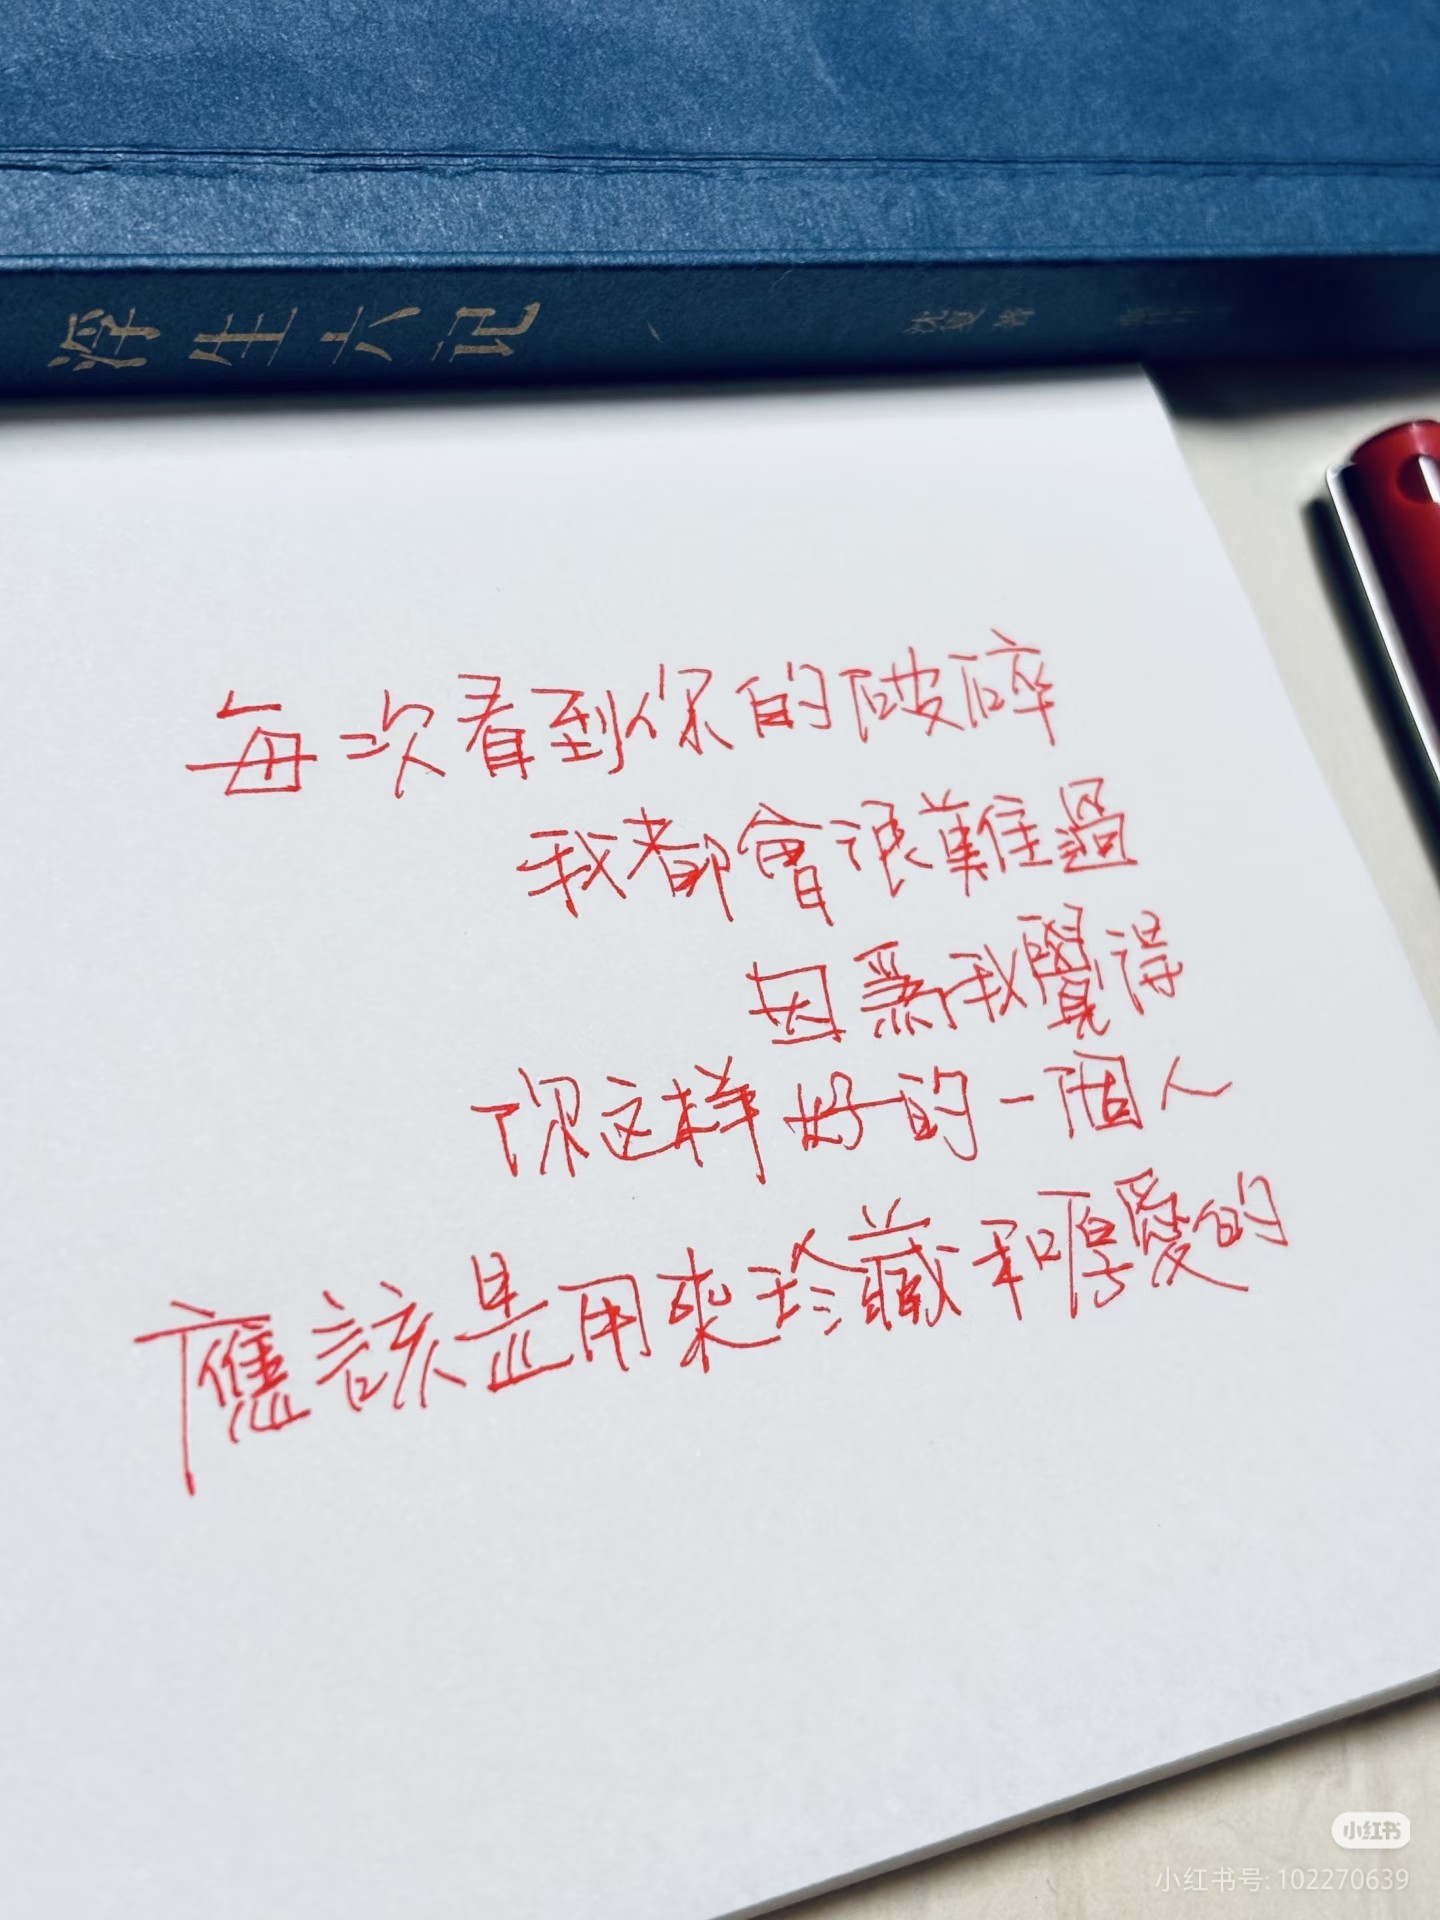 浮生六记
沈复 著
每次看到你的破碎
我都會很難過
因爲我覺得
你这样好的一個人
應該是用來珍藏和厚愛的
小红书
小红书号: 102270639